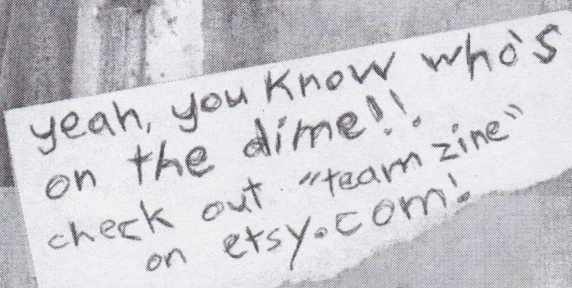 yeah, you know who's
on the dime!!
check out "team zine"
on etsy.com!